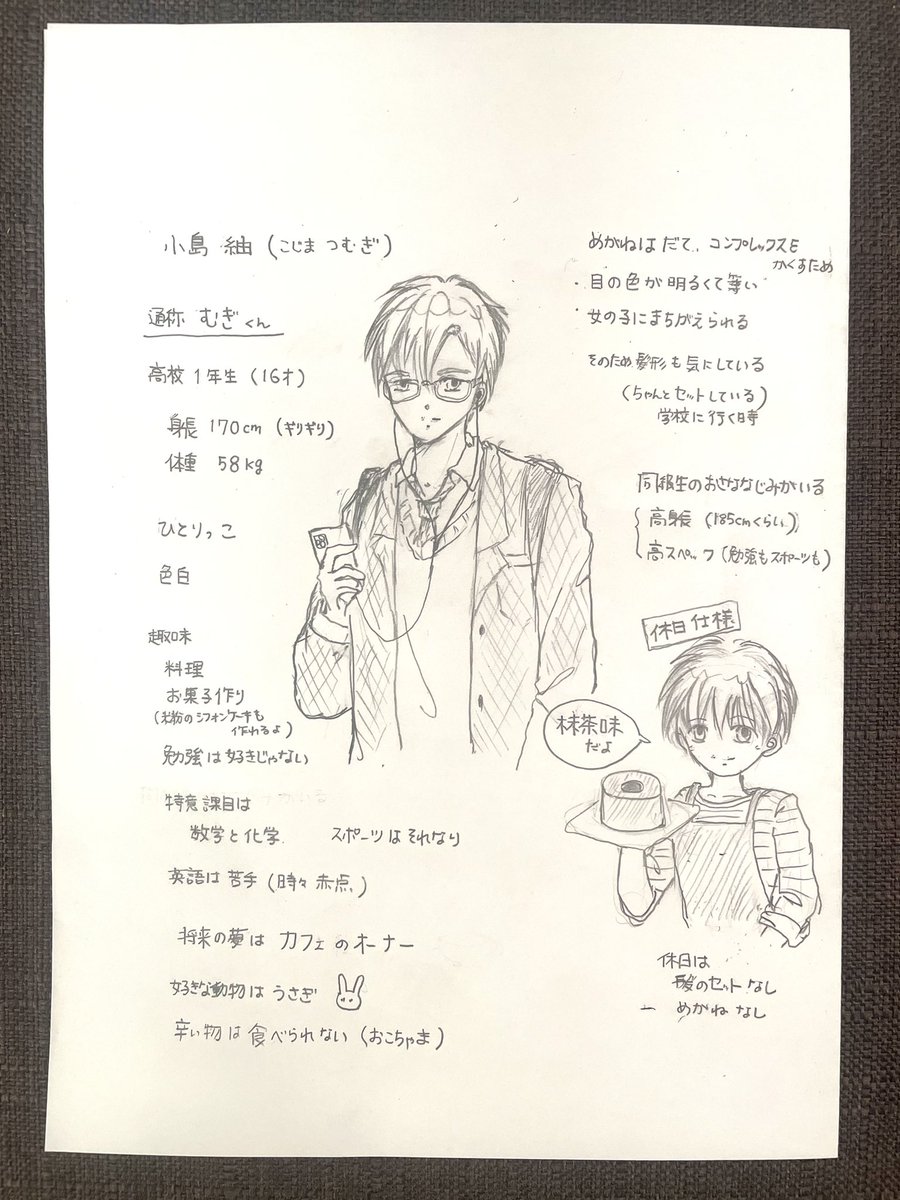 小島 紬 (こじま つむぎ)
通称 むぎくん
高校1年生 (16才)
身長 170cm (ギリギリ)
体重 58kg
ひとりっこ
色白
趣味
料理
お菓子作り
(米粉のシフォンケーキも
作れるよ)
勉強は好きじゃない
得意課目は
数学と化学 スポーツはそれなり
英語は苦手 (時々赤点)
将来の夢は カフェのオーナー
好きな動物は うさぎ
辛い物は食べられない (おこちゃま)
めがねはだて、コンプレックスを
かくすため
・目の色が明るくて薄い
・女の子にまちがえられる
そのため髪形も気にしている
(ちゃんとセットしている)
学校に行く時
同級生のおさななじみがいる
高身長 (185cmくらい)
高スペック (勉強もスポーツも)
休日仕様
抹茶味
だよ
休日は
髪のセットなし
めがねなし